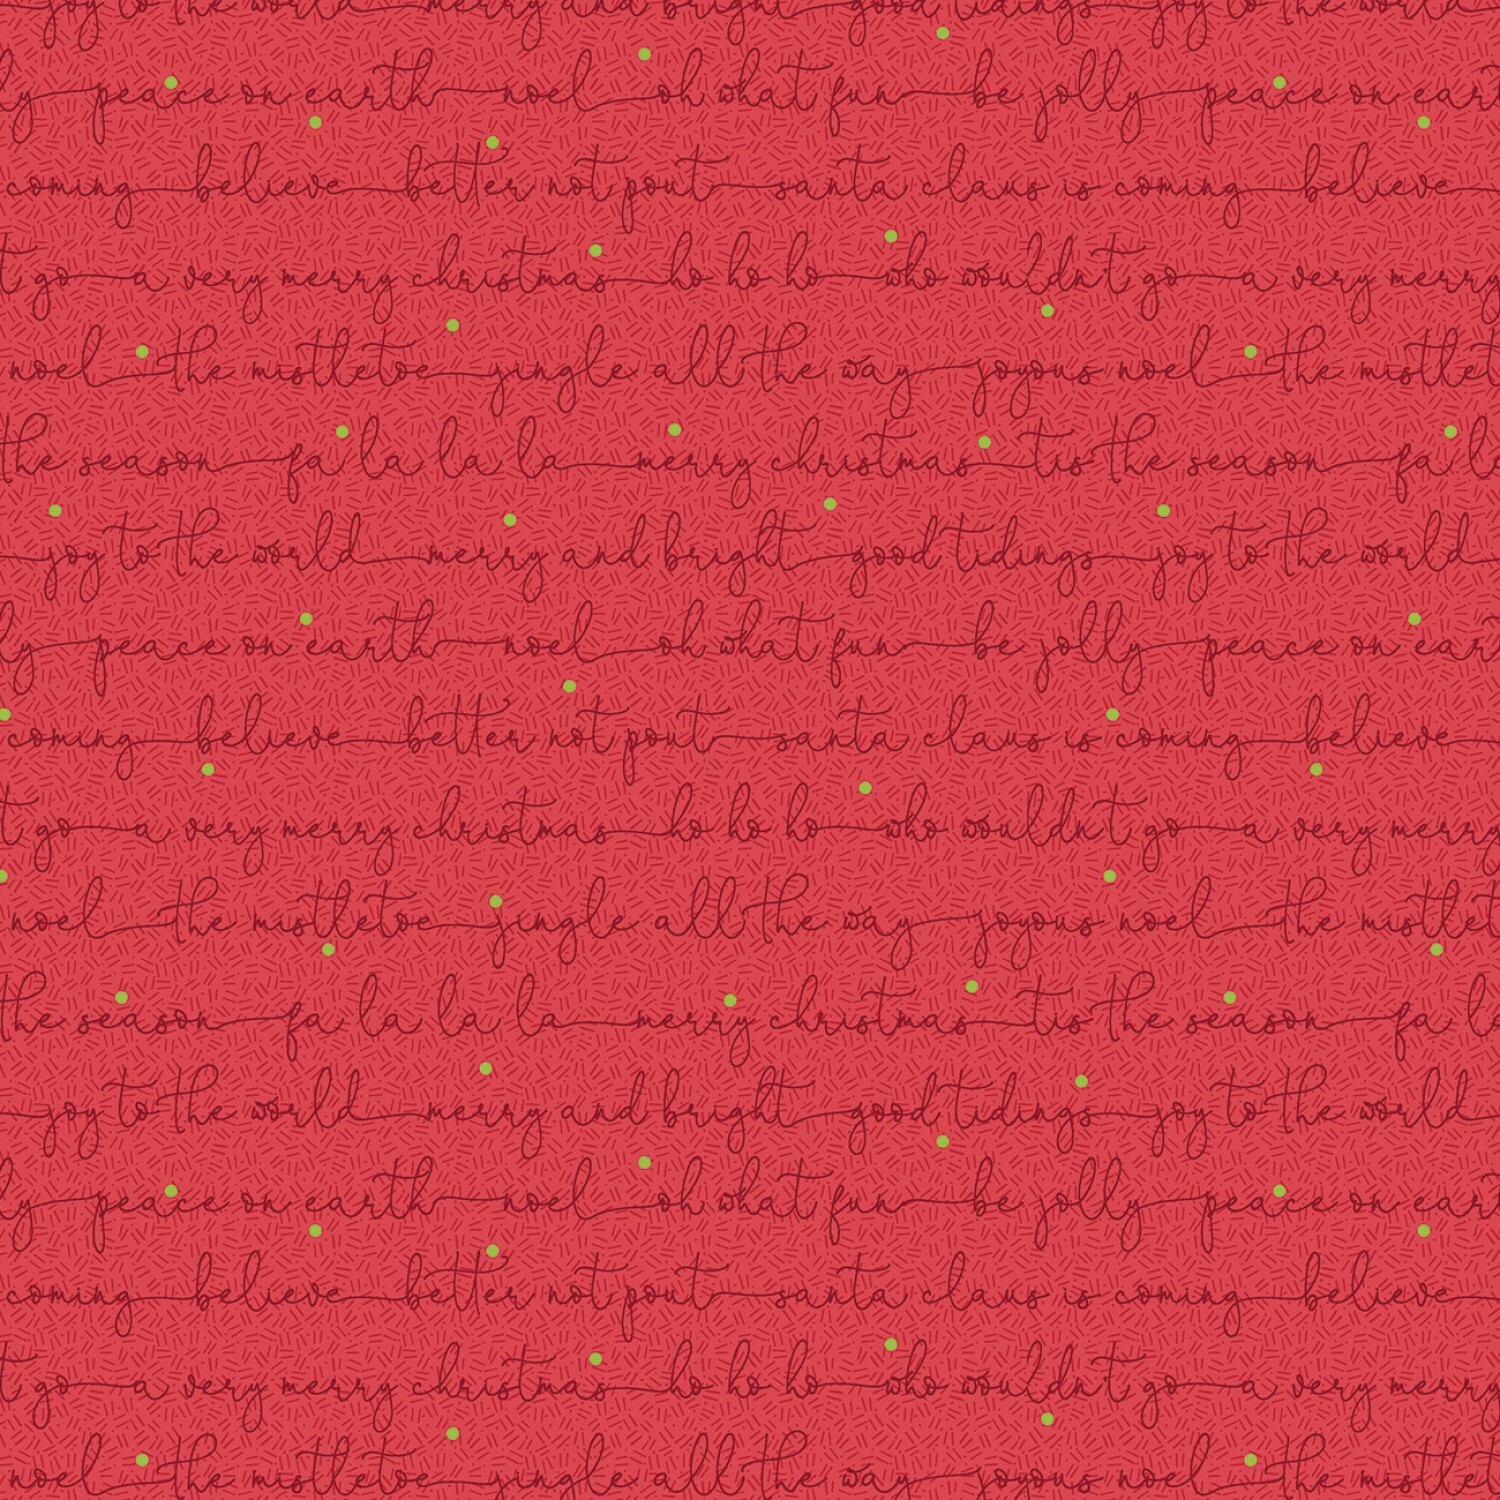 joy to the world merry and bright good tidings joy to the world
ly peace on earth noel oh what fun be jolly peace on ear
coming believe better not pout santa claus is coming believe
t go a very merry christmas ho ho ho who wouldn't go a very merry
noel the mistletoe jingle all the way joyous noel the mistlet
the season fa la la la merry christmas tis the season fa la
joy to the world merry and bright good tidings joy to the world
ly peace on earth noel oh what fun be jolly peace on ear
coming believe better not pout santa claus is coming believe
t go a very merry christmas ho ho ho who wouldn't go a very merry
noel the mistletoe jingle all the way joyous noel the mistlet
the season fa la la la merry christmas tis the season fa la
joy to the world merry and bright good tidings joy to the world
ly peace on earth noel oh what fun be jolly peace on ear
coming believe better not pout santa claus is coming believe
t go a very merry christmas ho ho ho who wouldn't go a very merry
noel the mistletoe jingle all the way joyous noel the mistlet